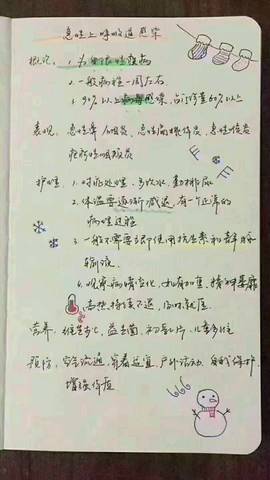 急性上呼吸道感染
概论: 1. 为自限性疾病
2. 一般病程一周左右
3. 90%以上病毒感染, 占门诊量60%以上
表现: 急性鼻、咽炎, 急性扁桃体炎, 急性喉炎
疱疹性咽峡炎
护理: 1. 对症处理, 多饮水, 勤排尿
2. 体温要逐渐减, 有一个正常的
病程过程
3. 一般不需要立即使用抗生素和静脉
输液
4. 观察病情变化, 如有加重, 精神萎靡
高热持续不退, 及时就医
营养: 维生素C, 益生菌, 初乳片, 儿童多维
预防: 空气流通, 穿着适宜, 户外活动, 自我保护,
增强体质